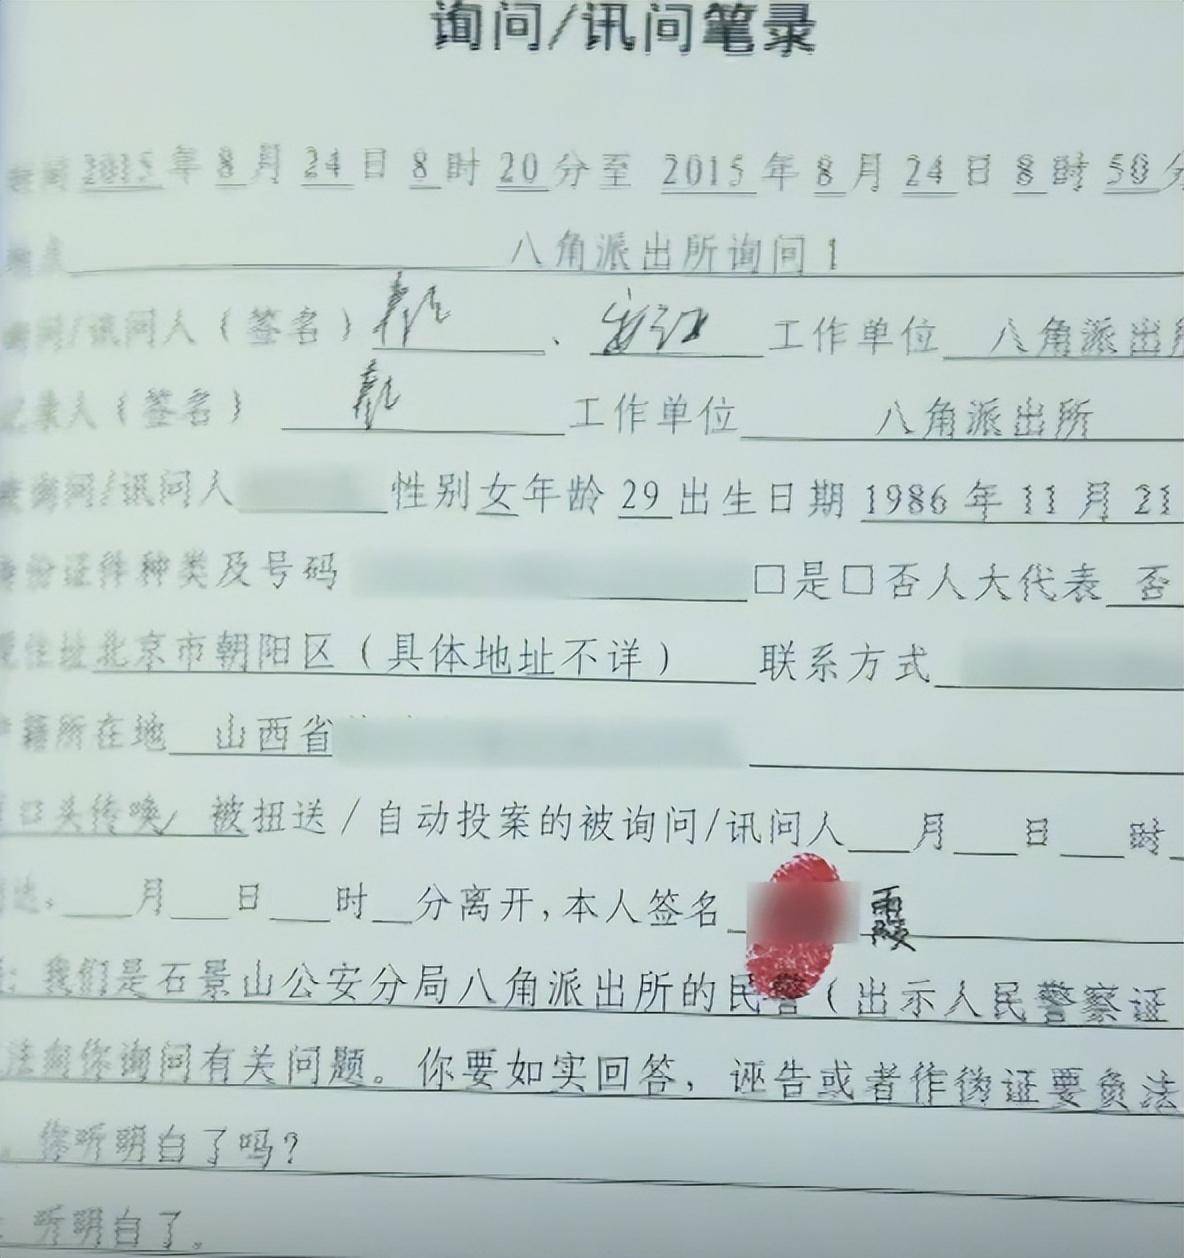 询问/讯问笔录
时间 2015 年 8 月 24 日 8 时 20 分至 2015 年 8 月 24 日 8 时 50 分
地点 八角派出所询问 1
询问/讯问人（签名） 、 工作单位 八角派出所
记录人（签名） 工作单位 八角派出所
被询问/讯问人 性别 女 年龄 29 出生日期 1986 年 11 月 21
身份证件种类及号码 □是□否人大代表 否
现住址 北京市朝阳区（具体地址不详） 联系方式
户籍所在地 山西省
口头传唤/ 被扭送/自动投案的被询问/讯问人 月 日 时
达， 月 日 时 分离开，本人签名 霞
：我们是石景山公安分局八角派出所的民警（出示人民警察证
法向你询问有关问题。你要如实回答，诬告或者作伪证要负法
。你听明白了吗？
：听明白了。